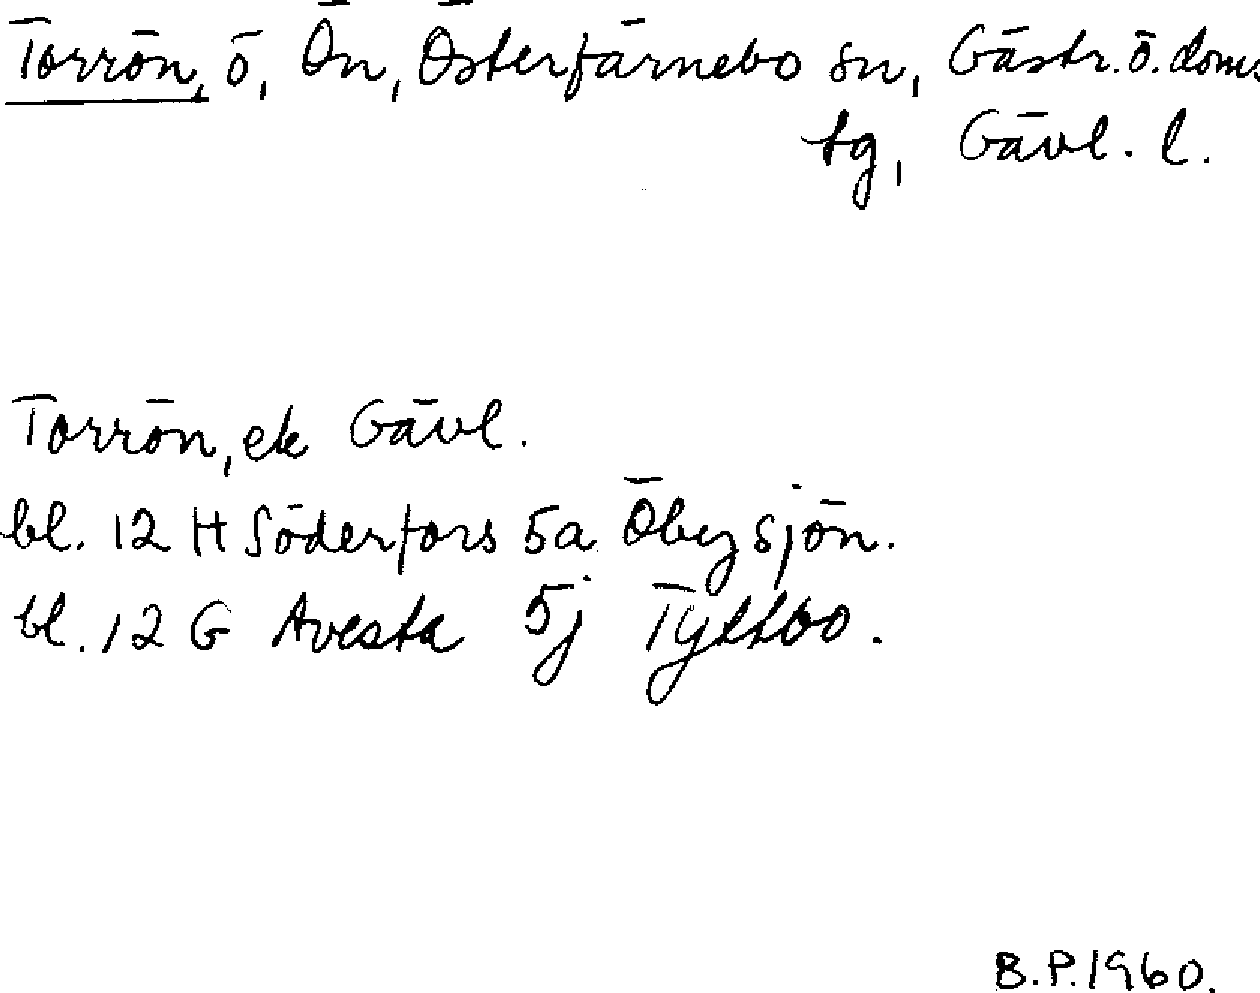 Torrön, ö, Ön, Österfärnebo sn, Gästr. ö. doms
tg, Gävl. l.
Torrön, ek Gävl.
bl. 12 H Söderfors 5a Öbysjön.
bl. 12 G Avesta 5j Tyttbo.
B.P. 1960.